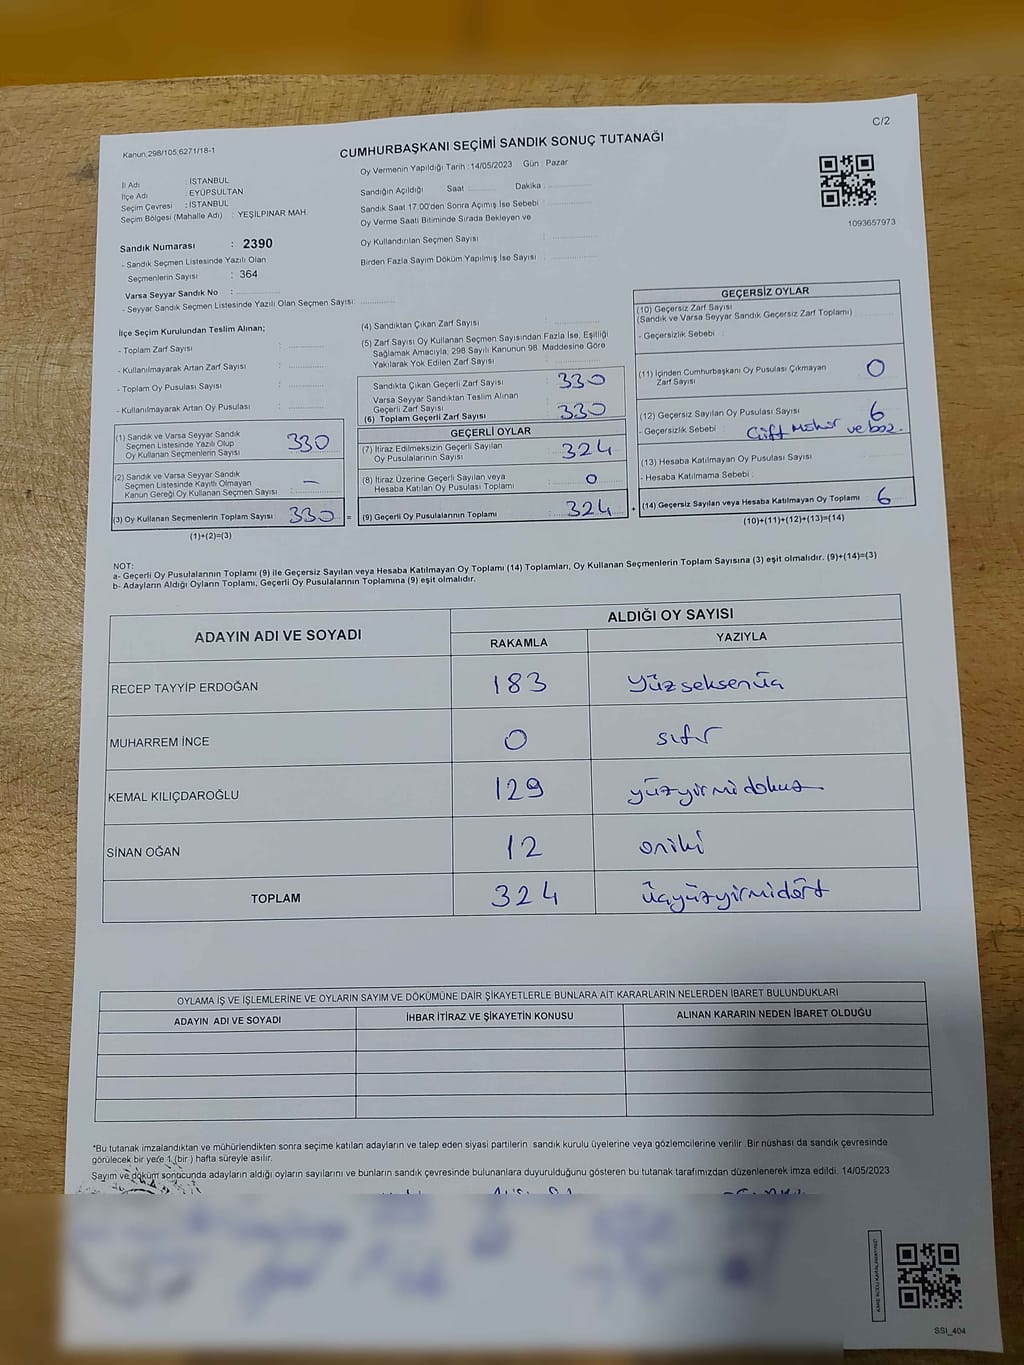 C/2
Kanun:298/105,6271/18-1
CUMHURBAŞKANI SEÇİMİ SANDIK SONUÇ TUTANAĞI
İl Adı : İSTANBUL
İlçe Adı : EYÜPSULTAN
Seçim Çevresi : İSTANBUL
Seçim Bölgesi (Mahalle Adı) : YEŞİLPINAR MAH.
Sandık Numarası : 2390
- Sandık Seçmen Listesinde Yazılı Olan
Seçmenlerin Sayısı : 364
Varsa Seyyar Sandık No :
- Seyyar Sandık Seçmen Listesinde Yazılı Olan Seçmen Sayısı:
Oy Vermenin Yapıldığı Tarih : 14/05/2023 Gün : Pazar
Sandığın Açıldığı Saat Dakika :
Sandık Saat 17:00'den Sonra Açımış İse Sebebi :
Oy Verme Saati Bitiminde Sırada Bekleyen ve
Oy Kullandırılan Seçmen Sayısı :
Birden Fazla Sayım Döküm Yapılmış İse Sayısı :
1093657973
İlçe Seçim Kurulundan Teslim Alınan;
- Toplam Zarf Sayısı :
- Kullanılmayarak Artan Zarf Sayısı :
- Toplam Oy Pusulası Sayısı :
- Kullanılmayarak Artan Oy Pusulası :
(1) Sandık ve Varsa Seyyar Sandık
Seçmen Listesinde Yazılı Olup
Oy Kullanan Seçmenlerin Sayısı : 330
(2) Sandık ve Varsa Seyyar Sandık
Seçmen Listesinde Kayıtlı Olmayan
Kanun Gereği Oy Kullanan Seçmen Sayısı : –
(3) Oy Kullanan Seçmenlerin Toplam Sayısı : 330 =
(1)+(2)=(3)
(4) Sandıktan Çıkan Zarf Sayısı :
(5) Zarf Sayısı Oy Kullanan Seçmen Sayısından Fazla İse, Eşitliği
Sağlamak Amacıyla; 298 Sayılı Kanunun 98. Maddesine Göre
Yakılarak Yok Edilen Zarf Sayısı :
Sandıkta Çıkan Geçerli Zarf Sayısı : 330
Varsa Seyyar Sandıktan Teslim Alınan
Geçerli Zarf Sayısı :
(6) Toplam Geçerli Zarf Sayısı : 330
GEÇERLİ OYLAR
(7) İtiraz Edilmeksizin Geçerli Sayılan
Oy Pusulalarının Sayısı : 324
(8) İtiraz Üzerine Geçerli Sayılan veya
Hesaba Katılan Oy Pusulası Toplamı : 0
(9) Geçerli Oy Pusulalarının Toplamı : 324 +
GEÇERSİZ OYLAR
(10) Geçersiz Zarf Sayısı
(Sandık ve Varsa Seyyar Sandık Geçersiz Zarf Toplamı)
- Geçersizlik Sebebi :
(11) İçinden Cumhurbaşkanı Oy Pusulası Çıkmayan
Zarf Sayısı 0
(12) Geçersiz Sayılan Oy Pusulası Sayısı 6
- Geçersizlik Sebebi : Çift Mühür ve boş.
(13) Hesaba Katılmayan Oy Pusulası Sayısı
- Hesaba Katılmama Sebebi :
(14) Geçersiz Sayılan veya Hesaba Katılmayan Oy Toplamı : 6
(10)+(11)+(12)+(13)=(14)
NOT:
a- Geçerli Oy Pusulalarının Toplamı (9) ile Geçersiz Sayılan veya Hesaba Katılmayan Oy Toplamı (14) Toplamları, Oy Kullanan Seçmenlerin Toplam Sayısına (3) eşit olmalıdır. (9)+(14)=(3)
b- Adayların Aldığı Oyların Toplamı, Geçerli Oy Pusulalarının Toplamına (9) eşit olmalıdır.
ADAYIN ADI VE SOYADI ALDIĞI OY SAYISI
RAKAMLA YAZIYLA
RECEP TAYYİP ERDOĞAN 183 Yüzseksenüç
MUHARREM İNCE 0 sıfır
KEMAL KILIÇDAROĞLU 129 yüzyirmidokuz
SİNAN OĞAN 12 oniki
TOPLAM 324 üçyüzyirmidört
OYLAMA İŞ VE İŞLEMLERİNE VE OYLARIN SAYIM VE DÖKÜMÜNE DAİR ŞİKAYETLERLE BUNLARA AİT KARARLARIN NELERDEN İBARET BULUNDUKLARI
ADAYIN ADI VE SOYADI İHBAR İTİRAZ VE ŞİKAYETİN KONUSU ALINAN KARARIN NEDEN İBARET OLDUĞU
*Bu tutanak imzalandıktan ve mühürlendikten sonra seçime katılan adayların ve talep eden siyasi partilerin sandık kurulu üyelerine veya gözlemcilerine verilir. Bir nüshası da sandık çevresinde
görülecek bir yere 1 (bir ) hafta süreyle asılır.
Sayım ve döküm sonucunda adayların aldığı oyların sayılarını ve bunların sandık çevresinde bulunanlara duyurulduğunu gösteren bu tutanak tarafımızdan düzenlenerek imza edildi. 14/05/2023
SSI_404